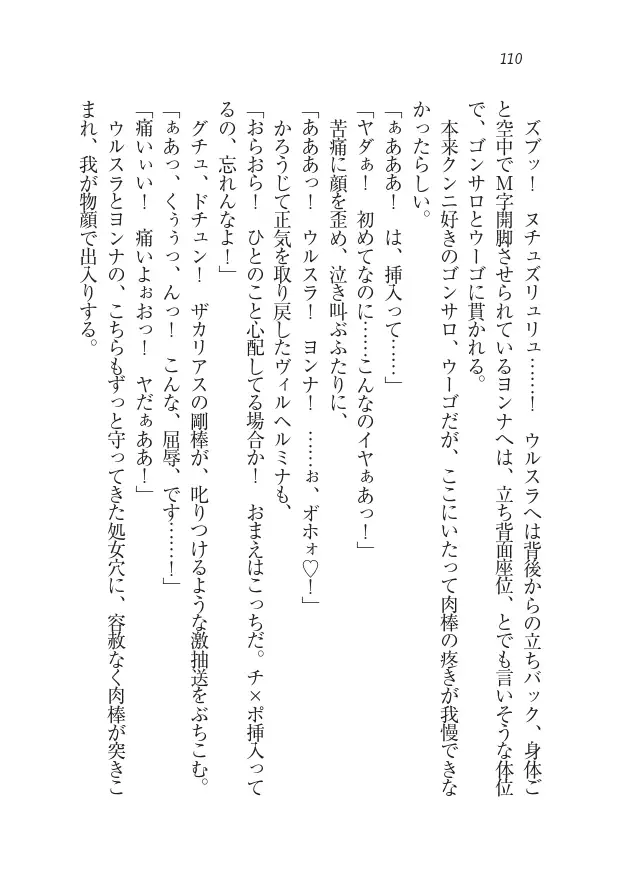 110
ズブッ！　ヌチュズリュリュ……！　ウルスラへは背後からの立ちバック、身体ご
と空中でM字開脚させられているヨンナへは、立ち背面座位、とでも言いそうな体位
で、ゴンサロとウーゴに貫かれる。
本来クンニ好きのゴンサロ、ウーゴだが、ここにいたって肉棒の疼きが我慢できな
かったらしい。
「ぁあああ！　は、挿入って……」
「ヤダぁ！　初めてなのに……こんなのイヤぁあっ！」
苦痛に顔を歪め、泣き叫ぶふたりに、
「あああっ！　ウルスラ！　ヨンナ！　……ぉ、オ゛ホォ♡！」
かろうじて正気を取り戻したヴィルヘルミナも、
「おらおら！　ひとのこと心配してる場合か！　おまえはこっちだ。チ×ポ挿入って
るの、忘れんなよ！」
グチュ、ドチュン！　ザカリアスの剛棒が、叱りつけるような激抽送をぶちこむ。
「ぁあっ、くぅぅっ、んっ！　こんな、屈辱、です……！」
「痛いぃい！　痛いよぉおっ！　ヤだぁああ！」
ウルスラとヨンナの、こちらもずっと守ってきた処女穴に、容赦なく肉棒が突きこ
まれ、我が物顔で出入りする。